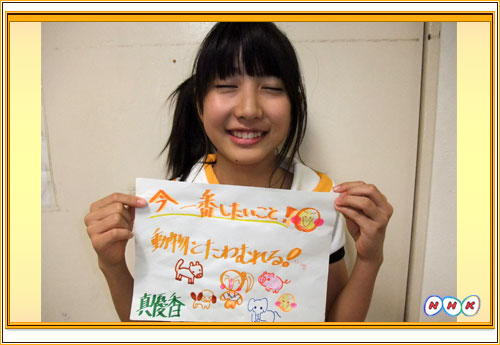 今一番したいこと!
動物とたわむれる。
真優香
NHK